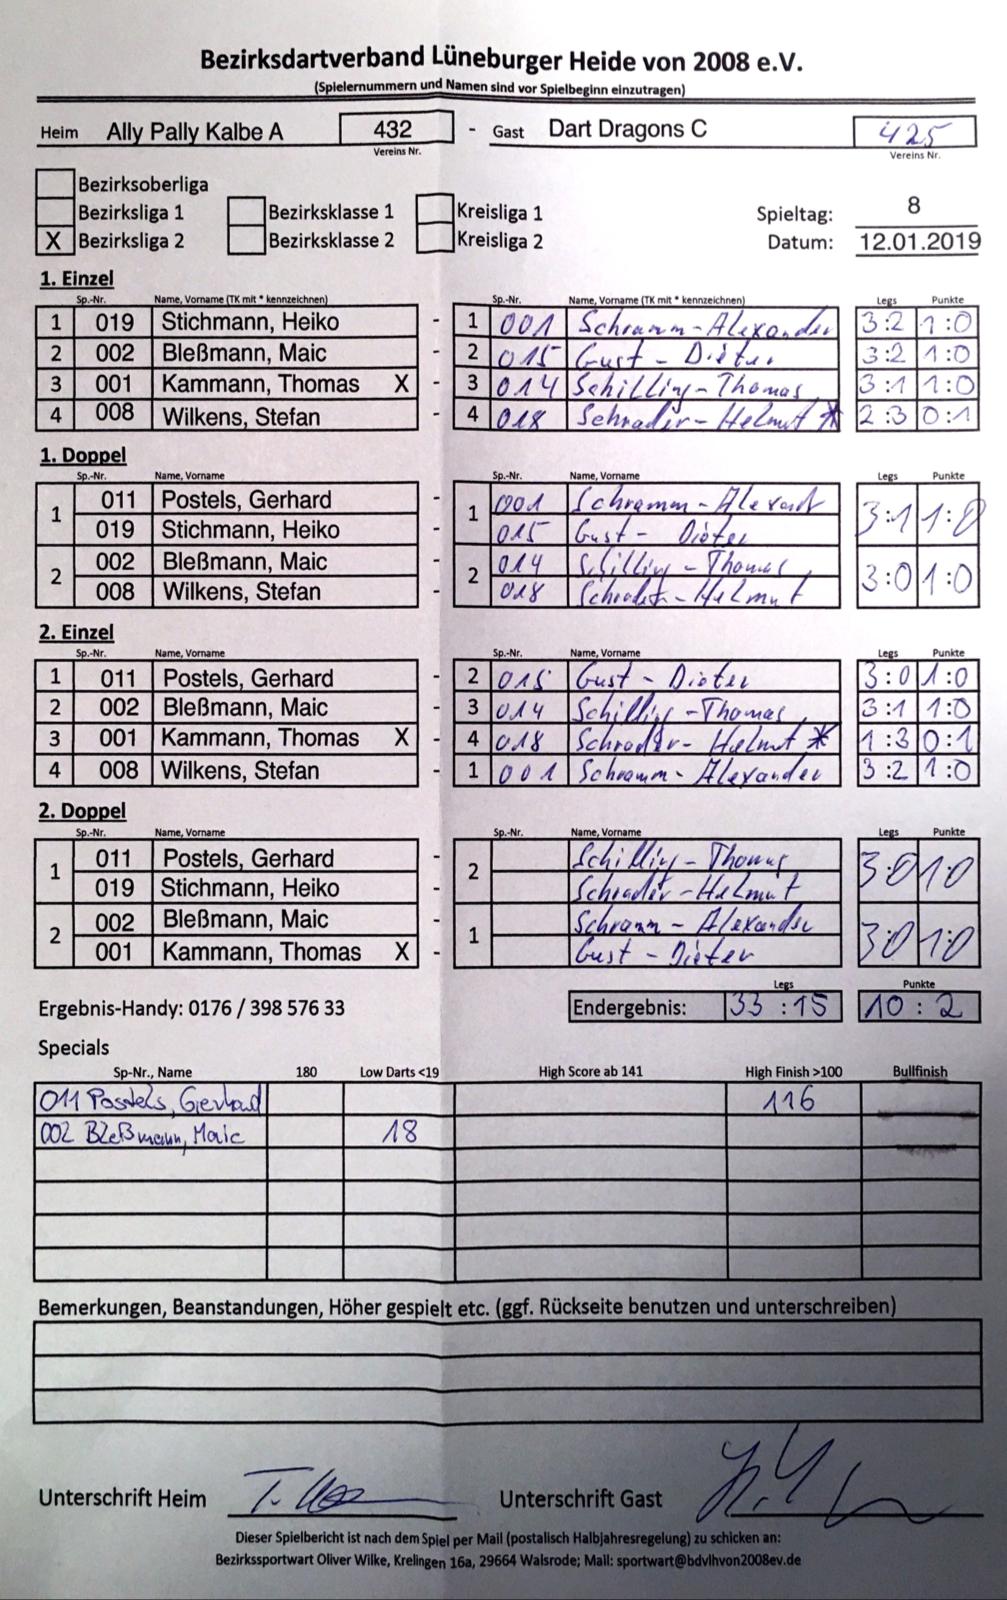 Bezirksdartverband Lüneburger Heide von 2008 e.V.
(Spielernummern und Namen sind vor Spielbeginn einzutragen)
Heim Ally Pally Kalbe A 432 - Gast Dart Dragons C 425
Vereins Nr. Vereins Nr.
Bezirksoberliga
Bezirksliga 1 Bezirksklasse 1 Kreisliga 1 Spieltag: 8
X Bezirksliga 2 Bezirksklasse 2 Kreisliga 2 Datum: 12.01.2019
1. Einzel
Sp.-Nr. Name, Vorname (TK mit * kennzeichnen) Sp.-Nr. Name, Vorname (TK mit * kennzeichnen) Legs Punkte
1 019 Stichmann, Heiko - 1 001 Schramm-Alexander 3:2 1:0
2 002 Bleßmann, Maic - 2 015 Gust - Dieter 3:2 1:0
3 001 Kammann, Thomas X - 3 014 Schilling-Thomas 3:1 1:0
4 008 Wilkens, Stefan - 4 018 Schrader-Helmut * 2:3 0:1
1. Doppel
Sp.-Nr. Name, Vorname Sp.-Nr. Name, Vorname Legs Punkte
1 011 Postels, Gerhard - 1 001 Schramm- 3:1 1:0
019 Stichmann, Heiko - 015 Gust - Dieter
2 002 Bleßmann, Maic - 2 014 Schilling - Thomas 3:0 1:0
008 Wilkens, Stefan - 018 Schrader - Helmut
2. Einzel
Sp.-Nr. Name, Vorname Sp.-Nr. Name, Vorname Legs Punkte
1 011 Postels, Gerhard - 2 015 Gust - Dieter 3:0 1:0
2 002 Bleßmann, Maic - 3 014 Schilling -Thomas 3:1 1:0
3 001 Kammann, Thomas X - 4 018 Schrader- Helmut * 1:3 0:1
4 008 Wilkens, Stefan - 1 001 Schramm- Alexander 3:2 1:0
2. Doppel
Sp.-Nr. Name, Vorname Sp.-Nr. Name, Vorname Legs Punkte
1 011 Postels, Gerhard - 2 Schilling - Thomas 3:0 1:0
019 Stichmann, Heiko - Schrader -Helmut
2 002 Bleßmann, Maic - 1 Schramm - Alexander 3:0 1:0
001 Kammann, Thomas X - Gust - Dieter
Legs Punkte
Ergebnis-Handy: 0176 / 398 576 33 Endergebnis: 33 : 15 10 : 2
Specials
Sp-Nr., Name 180 Low Darts <19 High Score ab 141 High Finish >100 Bullfinish
011 Postels, Gerhard 116
002 Bleßmann, Maic 18
Bemerkungen, Beanstandungen, Höher gespielt etc. (ggf. Rückseite benutzen und unterschreiben)
Unterschrift Heim Unterschrift Gast
Dieser Spielbericht ist nach dem Spiel per Mail (postalisch Halbjahresregelung) zu schicken an:
Bezirkssportwart Oliver Wilke, Krelingen 16a, 29664 Walsrode; Mail: sportwart@bdvlhvon2008ev.de